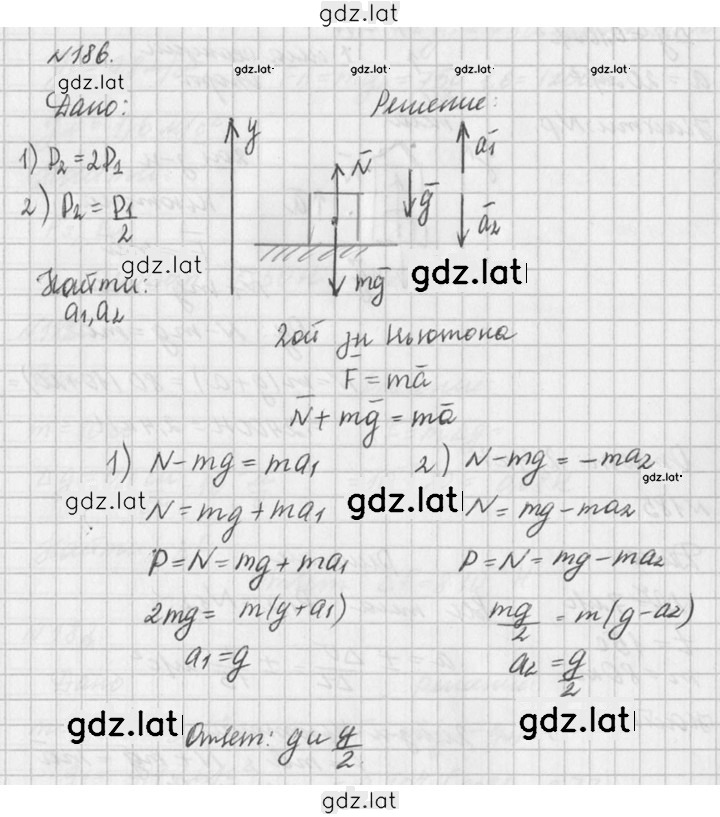 gdz.lat
№186.
gdz.lat
gdz.lat·
gdz.lat·
gdz.lat·
gdz.lat·
Дано:
Решение:
1) P₂ = 2P₁
2) P₂ = P₁/2
y
N̄
ḡ
ā₁
ā₂
mḡ
gdz.lat
gdz.lat
Найти:
a₁, a₂
2ой зн Ньютона
F̄ = mā
N̄ + mḡ = mā
1) N - mg = ma₁
2) N - mg = -ma₂
gdz.lat·
gdz.lat
gdz.lat
N = mg + ma₁
N = mg - ma₂
P = N = mg + ma₁
P = N = mg - ma₂
2mg = m(g + a₁)
mg/2 = m(g - a₂)
a₁ = g
a₂ = g/2
gdz.lat
gdz.lat
Ответ: g и g/2.
gdz.lat